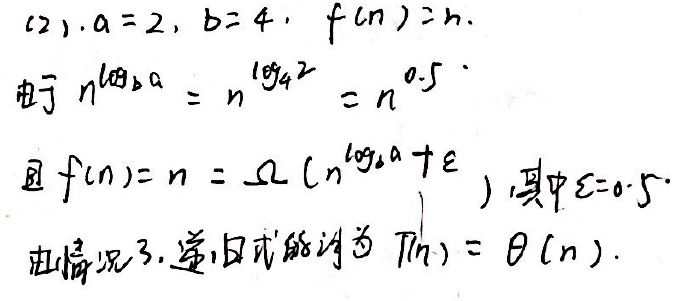 (2). a = 2, b = 4. f(n) = n.
由于 n^{log_b a} = n^{log_4 2} = n^{0.5}.
且 f(n) = n = Ω(n^{log_b a + ε}), 其中 ε = 0.5.
由情况3. 递归式的解为 T(n) = θ(n).